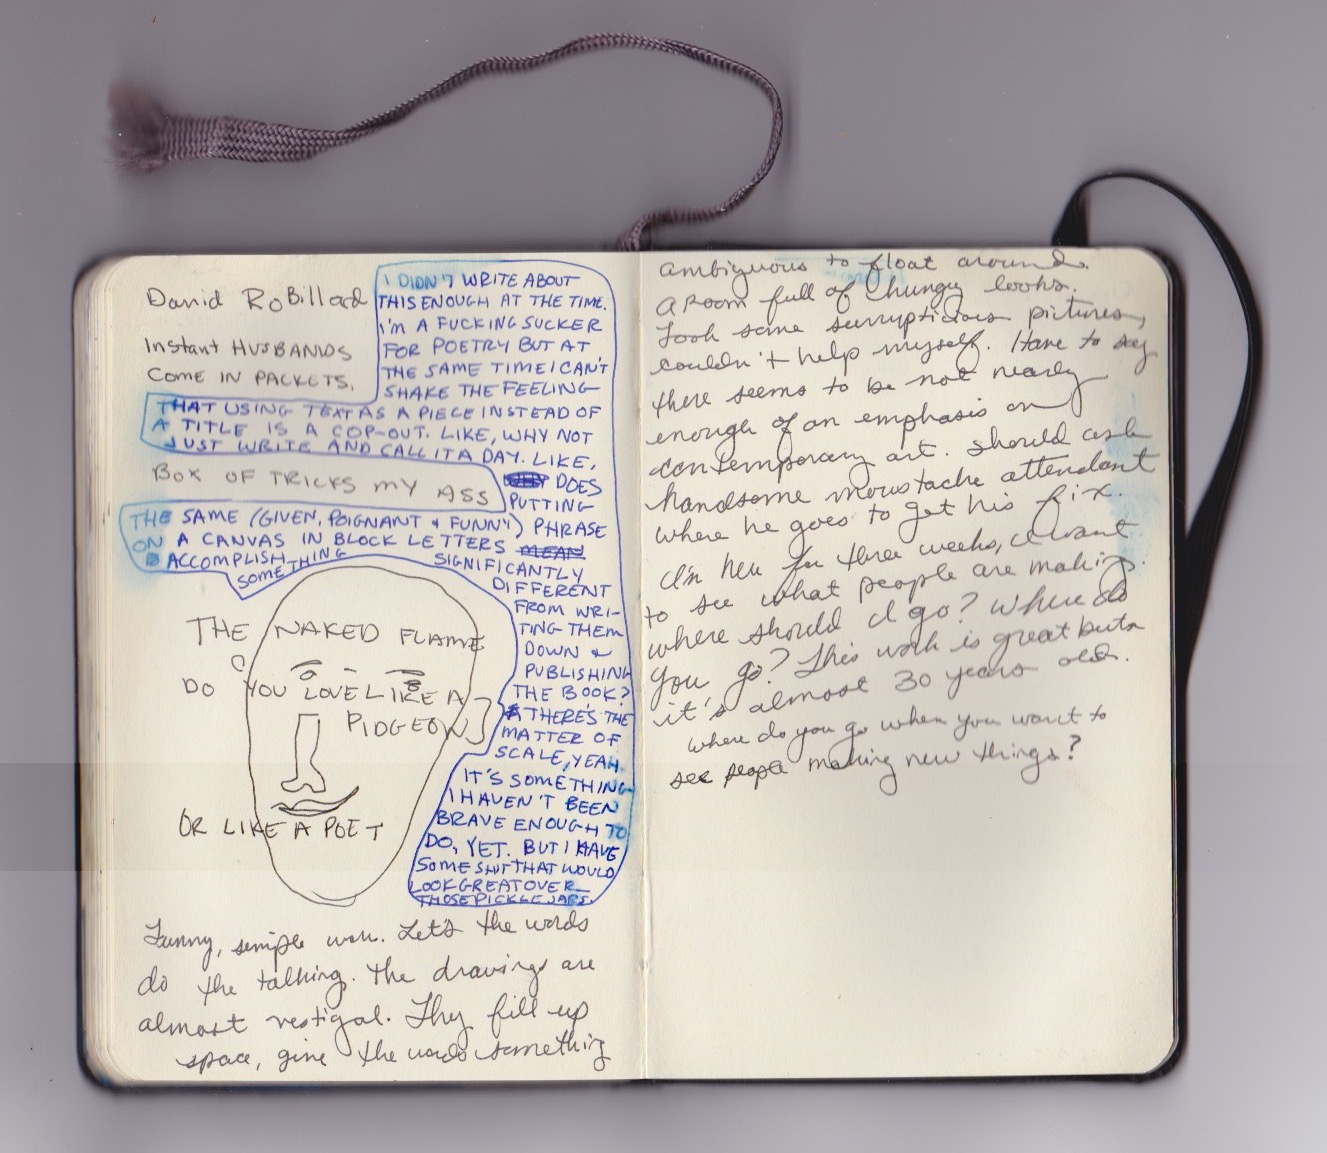 David RoBillard
Instant HUSBANDS
COME IN PACKETS.
I DIDN'T WRITE ABOUT
THIS ENOUGH AT THE TIME.
I'M A FUCKING SUCKER
FOR POETRY BUT AT
THE SAME TIME I CAN'T
SHAKE THE FEELING
THAT USING TEXT AS A PIECE INSTEAD OF
A TITLE IS A COP-OUT. LIKE, WHY NOT
JUST WRITE AND CALL IT A DAY. LIKE,
DOES
PUTTING
BOX OF TRICKS MY ASS
THE SAME (GIVEN, POIGNANT & FUNNY) PHRASE
ON A CANVAS IN BLOCK LETTERS MEAN
ACCOMPLISH SOMETHING
SIGNIFICANTLY
DIFFERENT
FROM WRI-
TING THEM
DOWN &
PUBLISHING
THE BOOK?
THERE'S THE
MATTER OF
SCALE, YEAH.
IT'S SOMETHING
I HAVEN'T BEEN
BRAVE ENOUGH TO
DO, YET. BUT I HAVE
SOME SHIT THAT WOULD
LOOK GREAT OVER
THOSE PICKLE JARS.
THE NAKED FLAME
DO YOU LOVE LIKE A
PIDGEON
OR LIKE A POET
Funny, simple work. Let's the words
do the talking. The drawings are
almost vestigal. They fill up
space, give the words something
ambiguous to float around.
A room full of hungry looks.
Took some surruptitious pictures,
couldn't help myself. Have to say
there seems to be not nearly
enough of an emphasis on
contemporary art. Should ask
handsome moustache attendant
where he goes to get his fix.
I'm here for three weeks, I want
to see what people are making.
where should I go? Where do
you go? This work is great but
it's almost 30 years old.
where do you go when you want to
see people making new things?